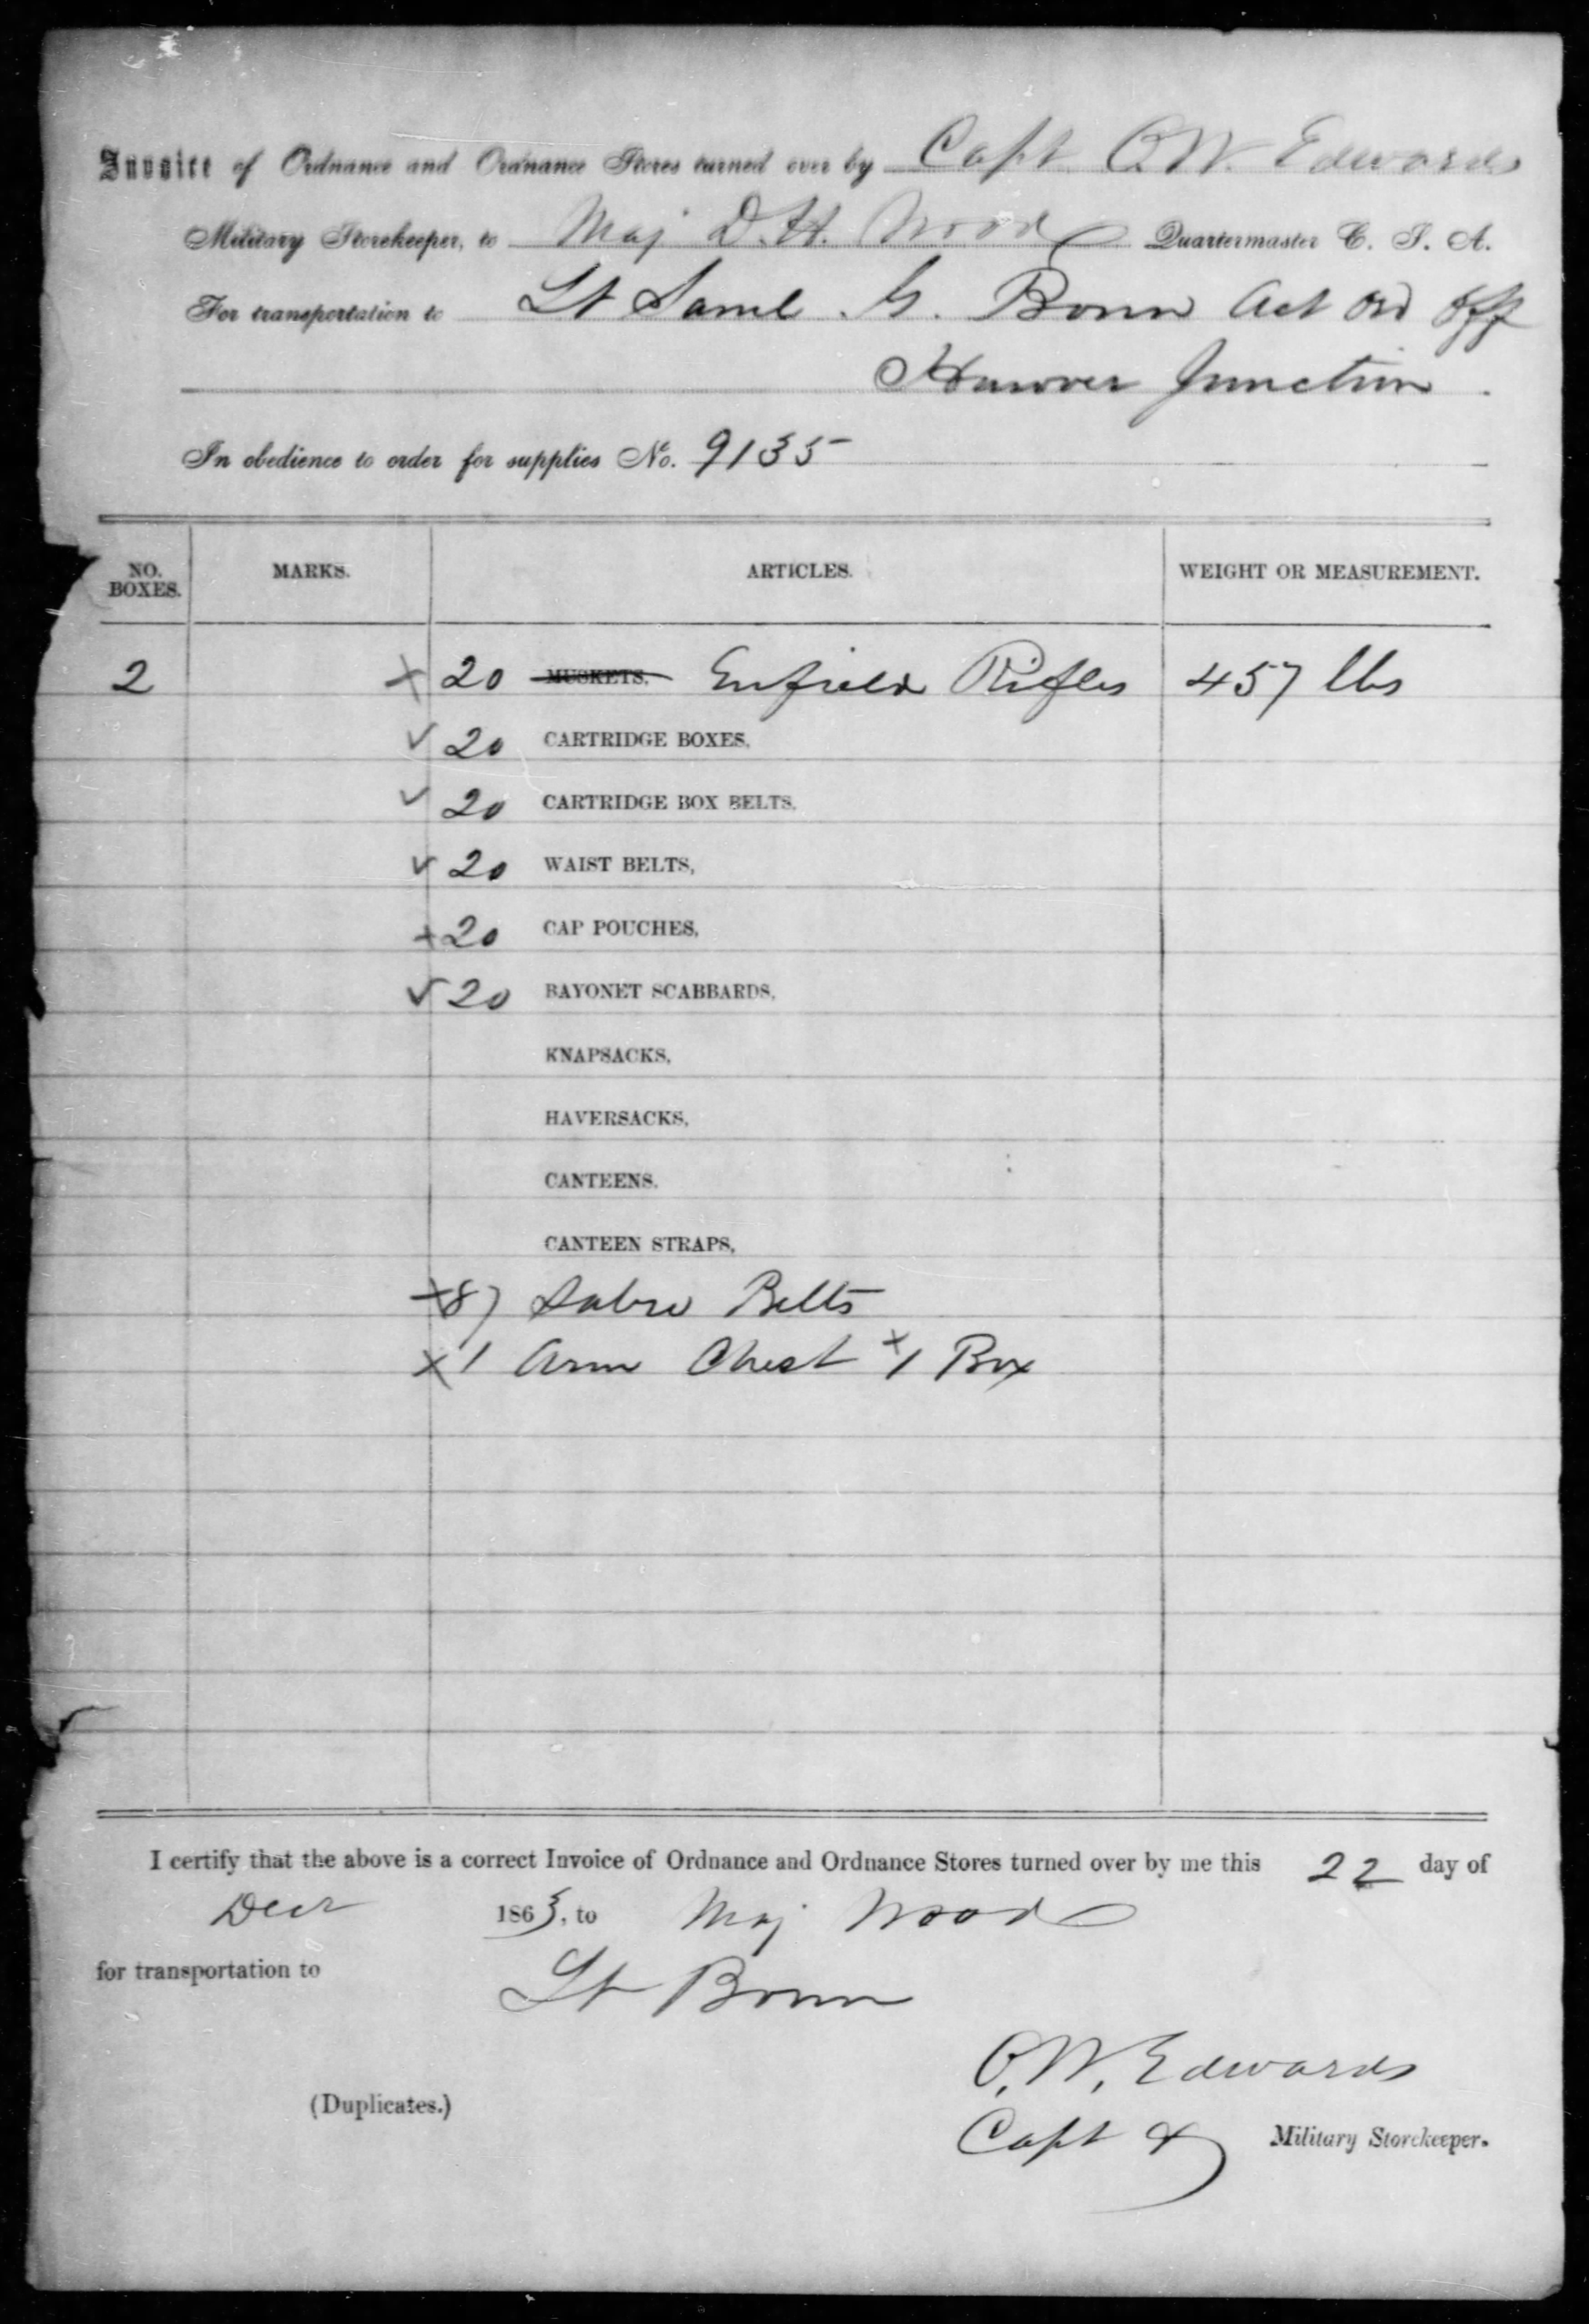 Invoice of Ordnance and Ordnance Stores turned over by Capt O.W. Edwards
Military Storekeeper, to Maj D.H. Wood Quartermaster C. S. A.
For transportation to Lt Saml G. Bonn Act Ord Off
Hanover Junction
In obedience to order for supplies No. 9135
NO. BOXES. MARKS. ARTICLES. WEIGHT OR MEASUREMENT.
2 x 20 MUSKETS, Enfield Rifles 457 lbs
✓ 20 CARTRIDGE BOXES,
✓ 20 CARTRIDGE BOX BELTS,
✓ 20 WAIST BELTS,
+ 20 CAP POUCHES,
✓ 20 BAYONET SCABBARDS,
KNAPSACKS,
HAVERSACKS,
CANTEENS,
CANTEEN STRAPS,
x 87 Sabre Belts
x 1 Arm Chest x 1 Box
I certify that the above is a correct Invoice of Ordnance and Ordnance Stores turned over by me this 22 day of
Decr 1863, to Maj Wood
for transportation to Lt Bonn
O.W. Edwards
(Duplicates.)
Capt & Military Storekeeper.